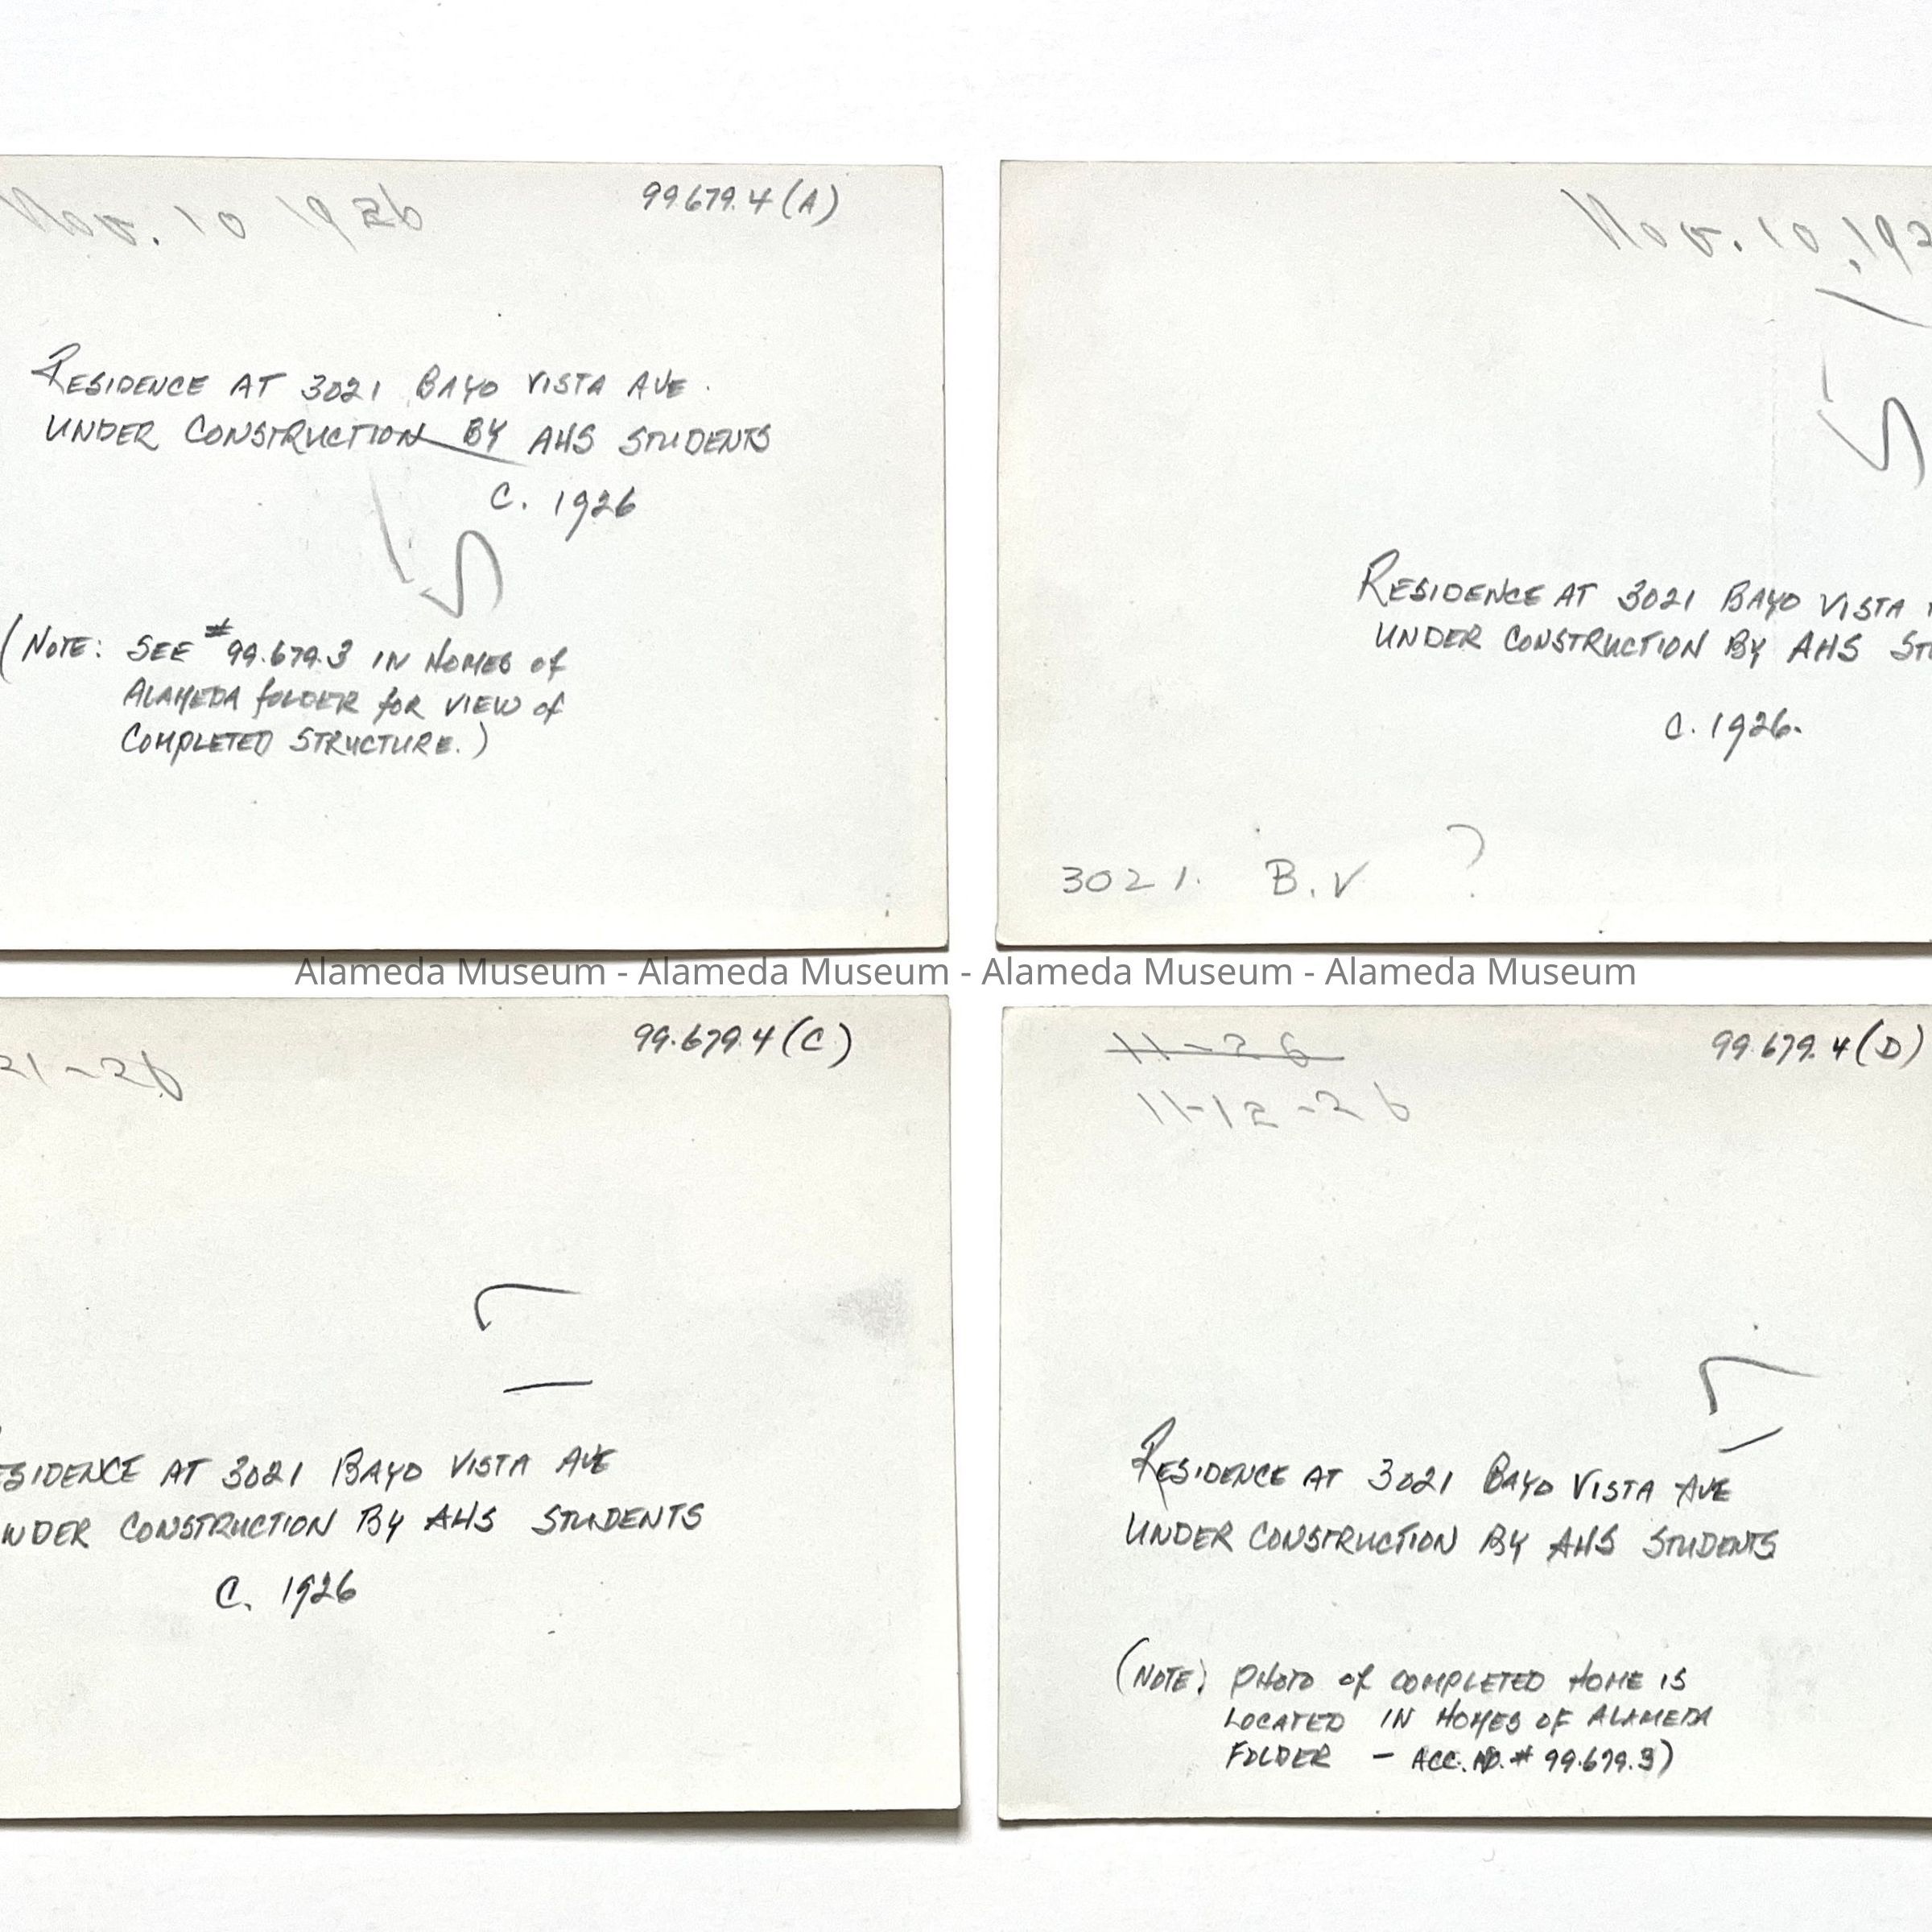 Nov. 10 1926
99.679.4 (A)
RESIDENCE AT 3021 BAYO VISTA AVE.
UNDER CONSTRUCTION BY AHS STUDENTS
C. 1926
(NOTE: SEE #99.679.3 IN HOMES of
ALAMEDA FOLDER FOR VIEW of
COMPLETED STRUCTURE.)
Nov. 10, 192
RESIDENCE AT 3021 BAYO VISTA
UNDER CONSTRUCTION BY AHS STU
C. 1926.
3021. B.V ?
Alameda Museum - Alameda Museum - Alameda Museum - Alameda Museum
21-26
99.679.4 (C)
ESIDENCE AT 3021 BAYO VISTA AVE
NDER CONSTRUCTION BY AHS STUDENTS
C. 1926
11-26
11-12-26
99.679.4 (D)
RESIDENCE AT 3021 BAYO VISTA AVE
UNDER CONSTRUCTION BY AHS STUDENTS
(NOTE: PHOTO of COMPLETED HOME IS
LOCATED IN HOMES OF ALAMEDA
FOLDER - ACC. NO. # 99.679.3)